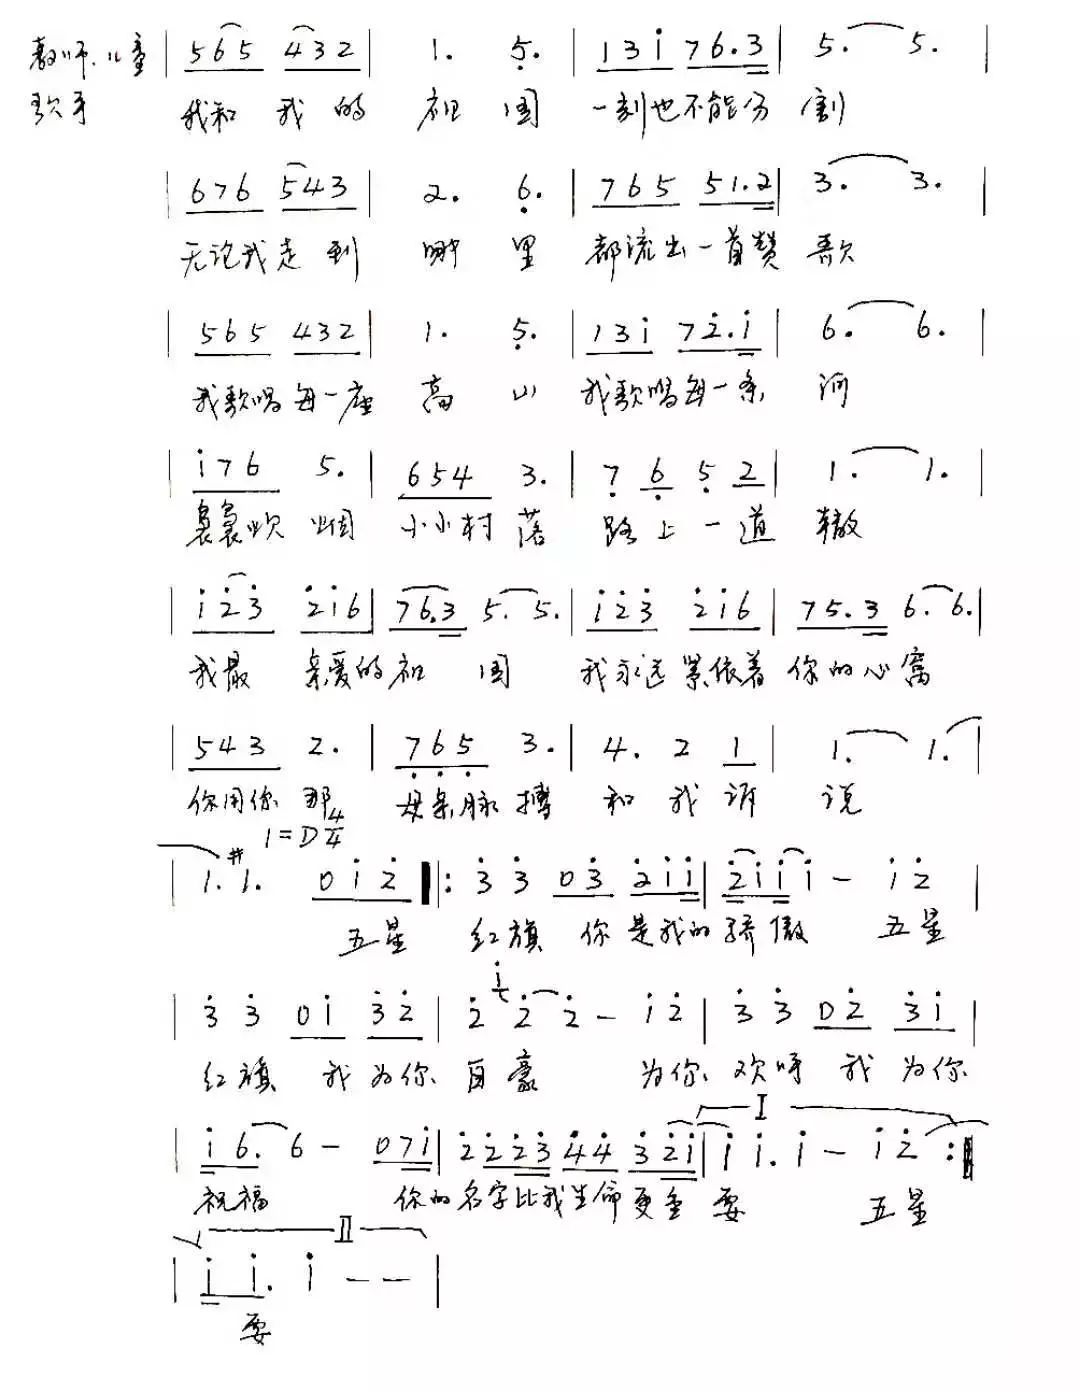 教师、儿童 | 565 432 | 1. 5. | 13i 76.3 | 5. 5. |
歌手 我和我的祖国 一刻也不能分割
| 676 543 | 2. 6. | 765 51.2 | 3. 3. |
无论我走到哪里 都流出一首赞歌
| 565 432 | 1. 5. | 13i 72.i | 6. 6. |
我歌唱每一座高山 我歌唱每一条河
| i76 5. | 654 3. | 7 6 5 2 | 1. 1. |
袅袅炊烟 小小村落 路上一道辙
| i23 2i6 | 76.3 5. 5. | i23 2i6 | 75.3 6. 6. |
我最亲爱的祖国 我永远紧依着你的心窝
| 543 2. | 765 3. | 4. 2 1 | 1. 1. |
你用你那 母亲脉搏 和我诉说
1=D 4/4
| 1. #1. 0i2 |: 3 3 03 2ii | 2iii i - i2 |
五星 红旗 你是我的骄傲 五星
i
| 3 3 0i 32 | 2 2 2 - i2 | 3 3 02 3i |
红旗 我为你自豪 为你欢呼 我为你
I
| i 6. 6 - 07i | 2223 44 32i | i i. i - i2 :|
祝福 你的名字比我生命更重要 五星
II
| i i. i - - |
要